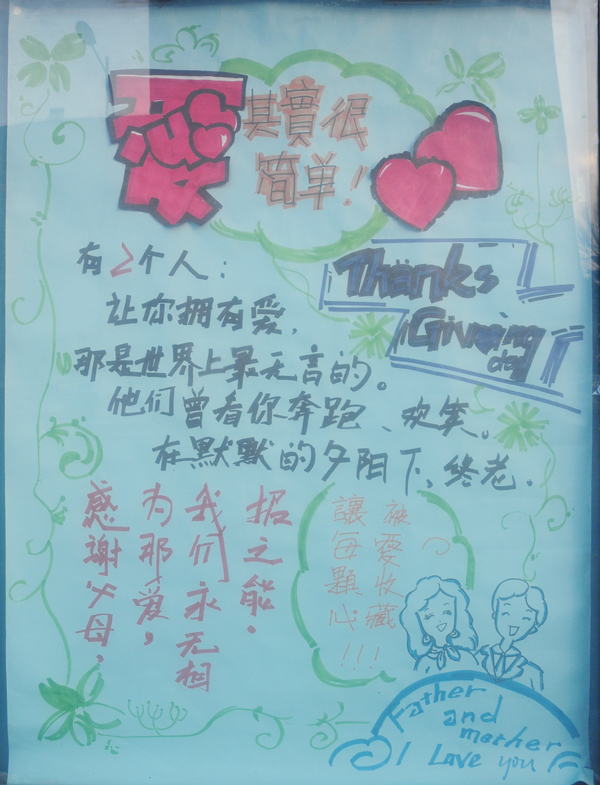 愛
其實很
簡单！
Thanks
Givming
day
有2个人：
让你拥有爱，
那是世界上最无言的。
他们曾看你奔跑、欢笑。
在默默的夕阳下、终老.
感謝父母，
为那爱，
我们永无相
招之能.
讓每顆心
被愛收藏
!!!
Father
and
mother
I Love you